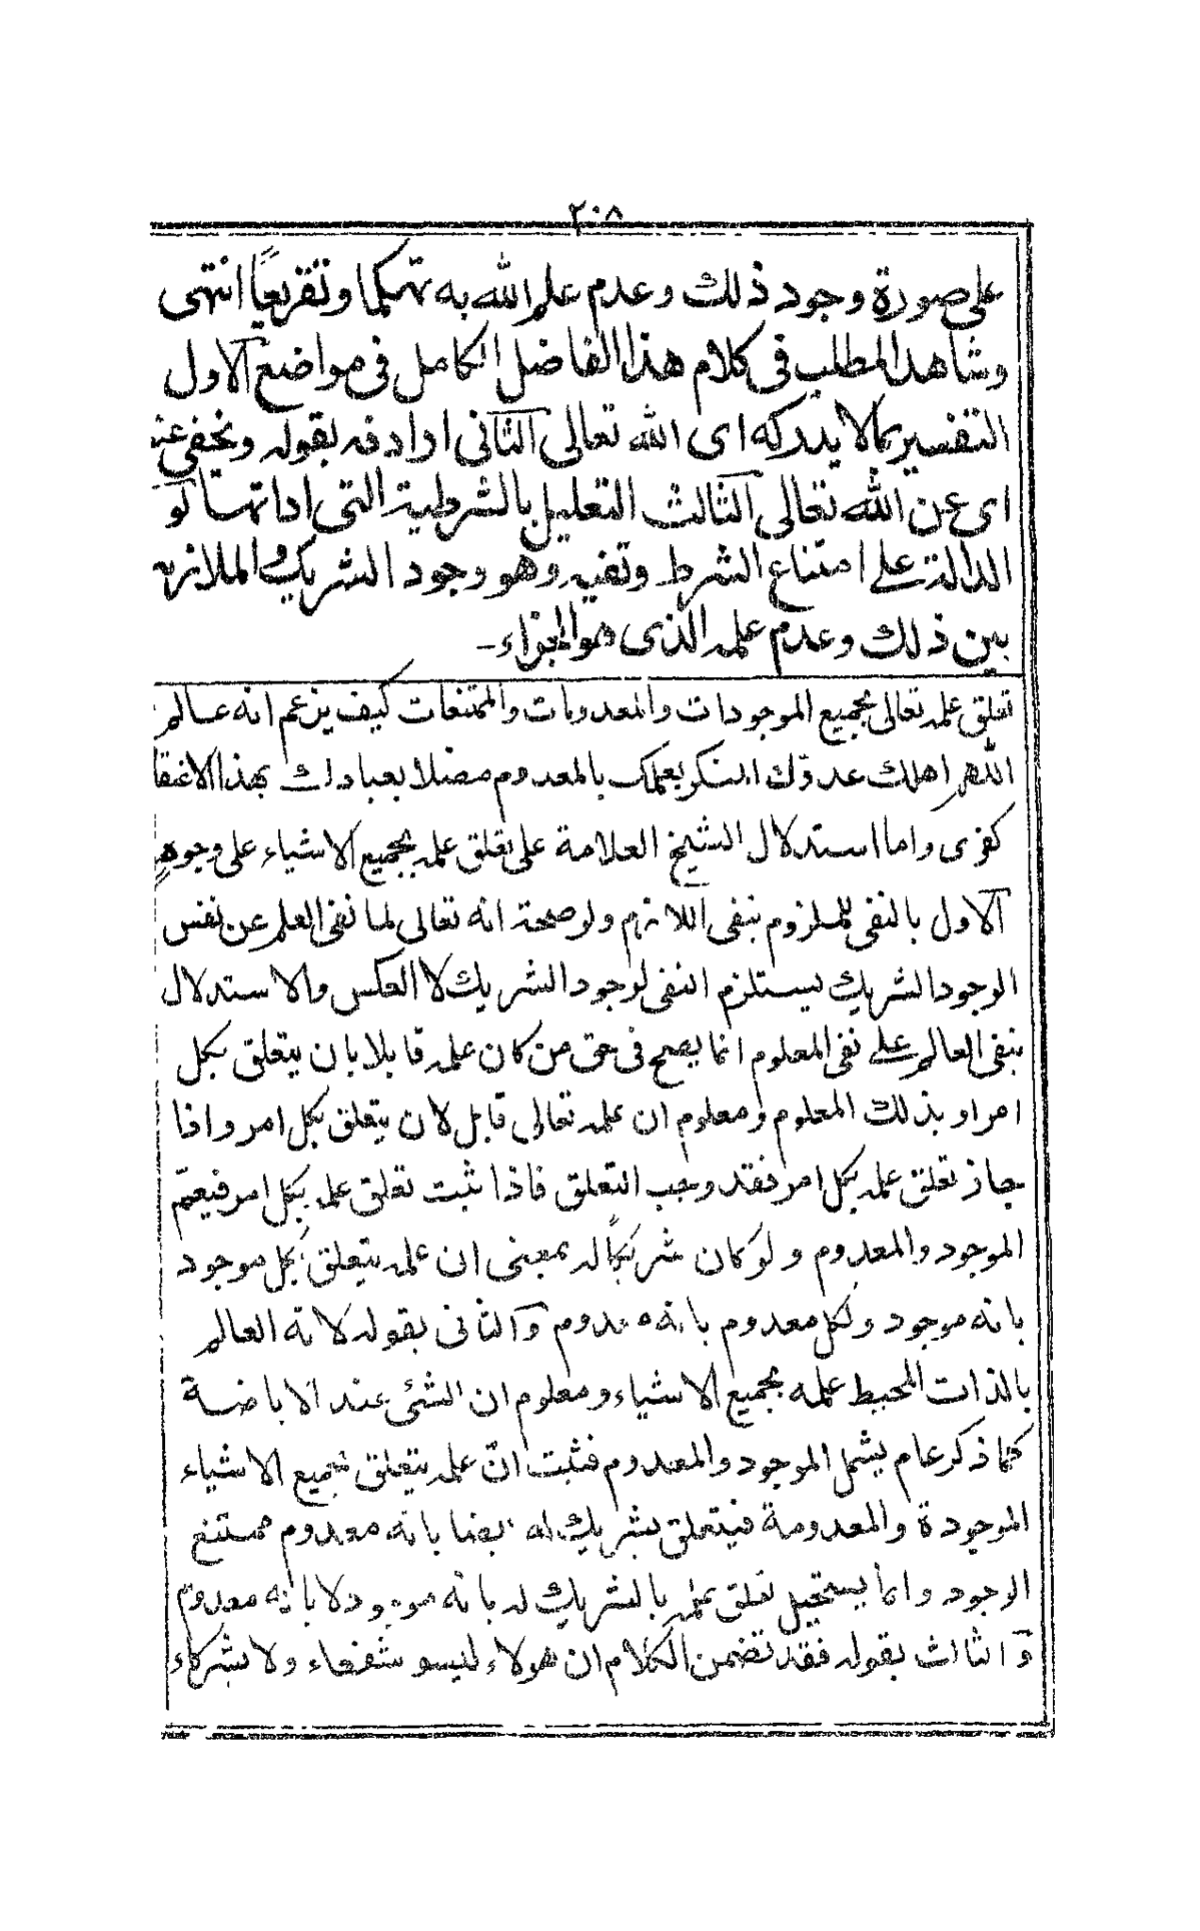 ٢٠٨
على صورة وجود ذلك وعدم علم الله به تهكما وتقريعاً انتهى
وشاهد المطلب فى كلام هذا الفاضل الكامل فى مواضع الاول
التفسير بمالا يدركه اى الله تعالى الثانى ارادفه بقوله ويخفى عنه
اى عن الله تعالى الثالث التعليل بالشرطية التى اداتها لو
الدالة على امتناع الشرط ونفيه وهو وجود الشريك والملازمة
بين ذلك وعدم علمه الذى هو الجزاء ـ
تعلق علمه تعالى بجميع الموجودات والمعدومات والممتنعات كيف يزعم انه عالم
اللهم اهلك عدوك المنكر بعلمك بالمعدوم مضلا بعبادك بهذا الاعتقا
كفرى واما استدلال الشيخ العلامة على تعلق علمه بجميع الاشياء على وجوه
الاول بالنفى للملزوم بنفى اللازم ولوصحة انه تعالى لما نفى العلم عن نفس
الوجود الشريك يستلزم النفى لوجود الشريك لا العكس والاستدلال
بنفى العالم على نفى المعلوم انما يصح فى حق من كان علمه قابلا بان يتعلق بكل
امر او بذلك المعلوم ومعلوم ان علمه تعالى قابل لان يتعلق بكل امر واذا
جاز تعلق علمه بكل امر فقد وجب التعلق فاذا ثبت تعلق علمه بكل امر فيعمّ
الموجود والمعدوم ولو كان شريكاً له بمعنى ان علمه يتعلق بكل موجود
بانه موجود ولكل معدوم بانه معدوم والثانى بقوله لانه العالم
بالذات المحيط علمه بجميع الاشياء ومعلوم ان الشئى عند الاباضية
كما ذكر عام يشمل الموجود والمعدوم فثبت انّ علمه يتعلق بجميع الاشياء
الموجودة والمعدومة فيتعلق بشريك له ايضا بانه معدوم ممتنع
الوجود وانما يستحيل تعلق علمه بالشريك له بانه موجود لا بانه معدوم
والثالث بقوله فقد تضمن الكلام ان هولاء ليسو شفعاء ولا شركاء